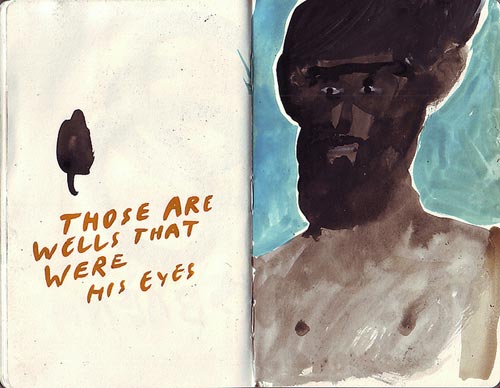 THOSE ARE
WELLS THAT
WERE
HIS EYES